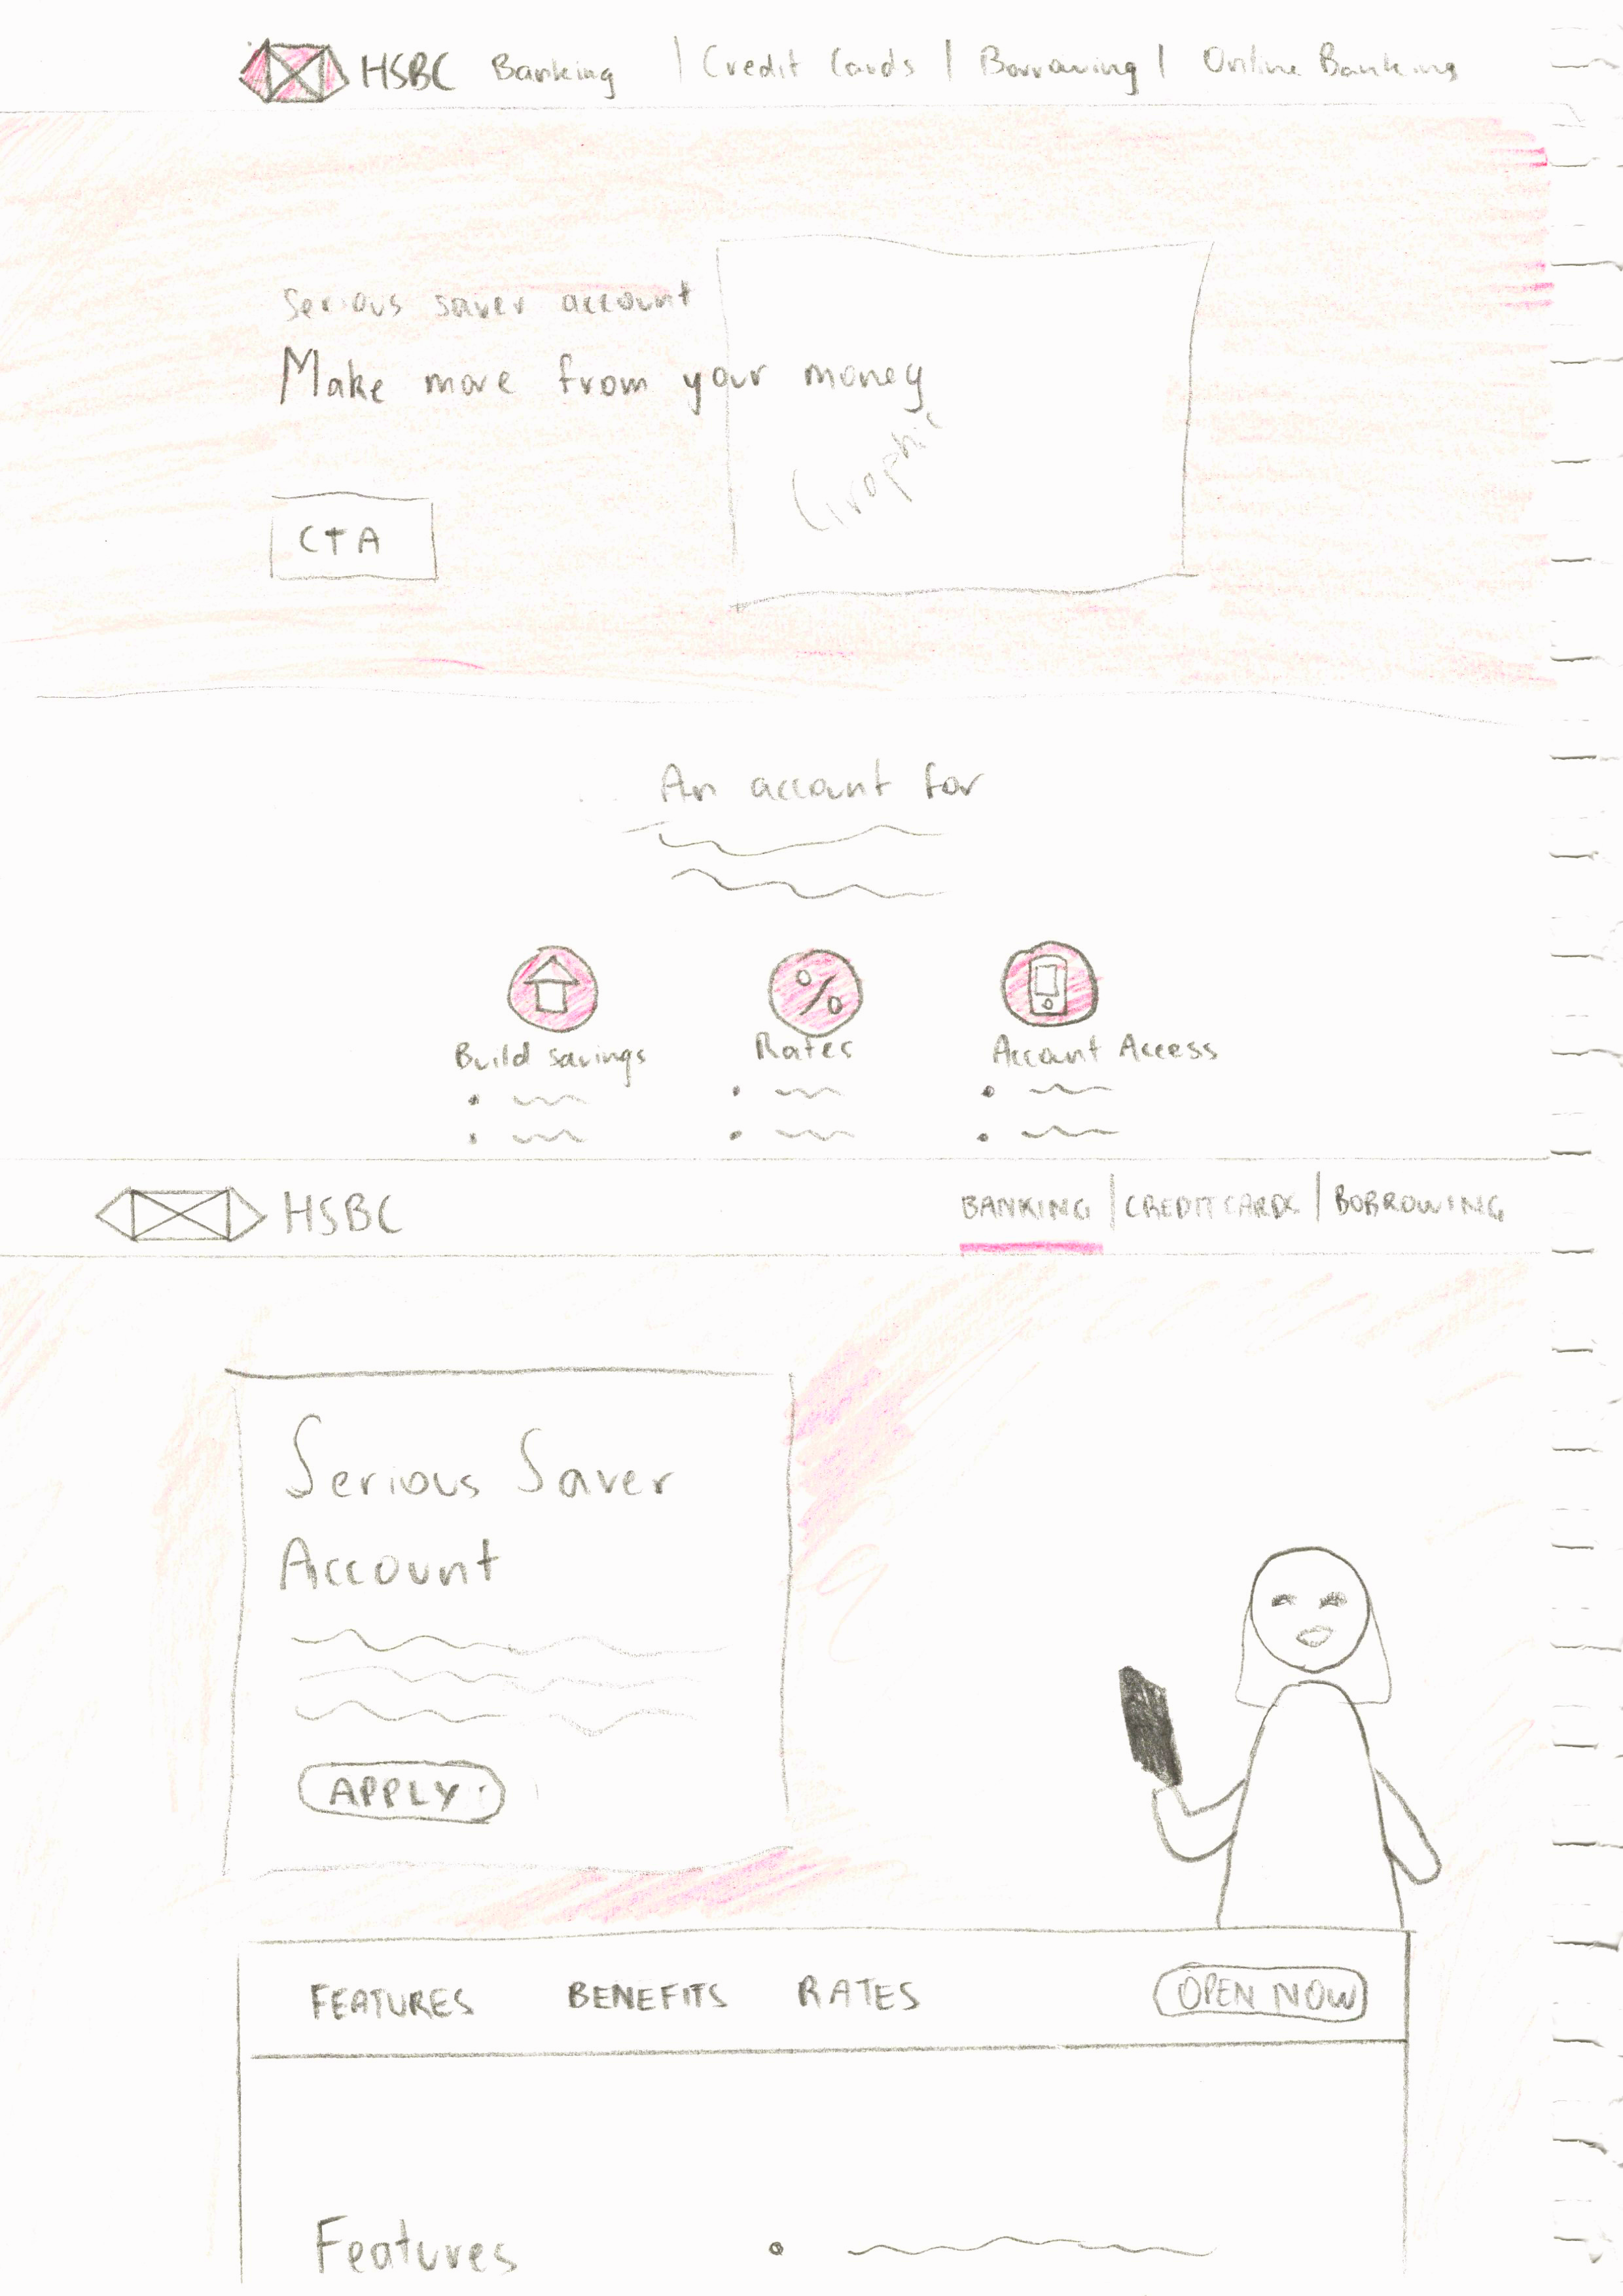 HSBC Banking | Credit Cards | Borrowing | Online Banking
Serious saver account
Make more from your money
Graphic
CTA
An account for
%
Build savings Rates Account Access
HSBC BANKING | CREDIT CARDS | BOBROWING
Serious Saver
Account
APPLY
FEATURES BENEFITS RATES OPEN NOW
Features